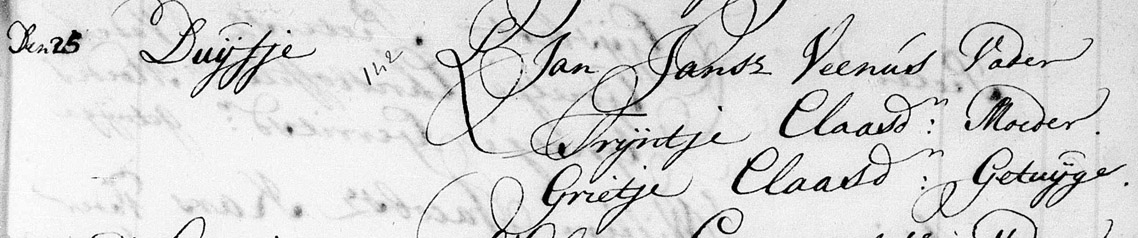 Den 25 Duijfje 142 Jan Jansz Veenús Vader
Trijntje Claasdn: Moeder.
Grietje Claasdn: Getuijge.